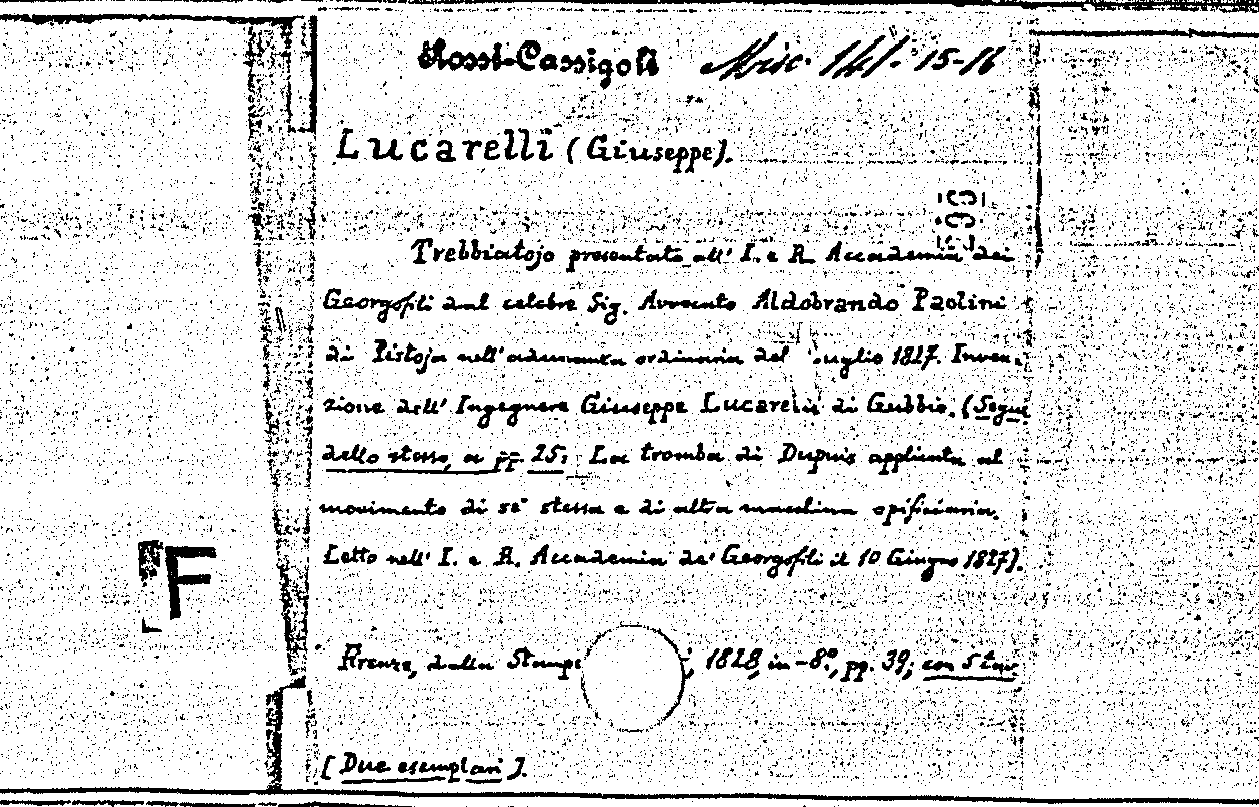 Rossi-Cassigoli Misc. 141. 15-16
Lucarelli (Giuseppe).
Trebbiatojo presentato all' I. e R. Accademia dei
Georgofili dal celebre Sig. Avvocato Aldobrando Paolini
di Pistoja nell'adunanza ordinaria del uglio 1827. Inven-
zione dell' Ingegnere Giuseppe Lucarelli di Gubbio. (Segue
dello stesso, a pp. 25: La tromba di Dupuis applicata al
movimento di sè stessa e di altra macchina opificiaria.
Letto nell' I. e R. Accademia de' Georgofili il 10 Giugno 1827).
F
Firenze, dalla Stampe , 1828, in-8°, pp. 39; con 5 tav.
[Due esemplari].